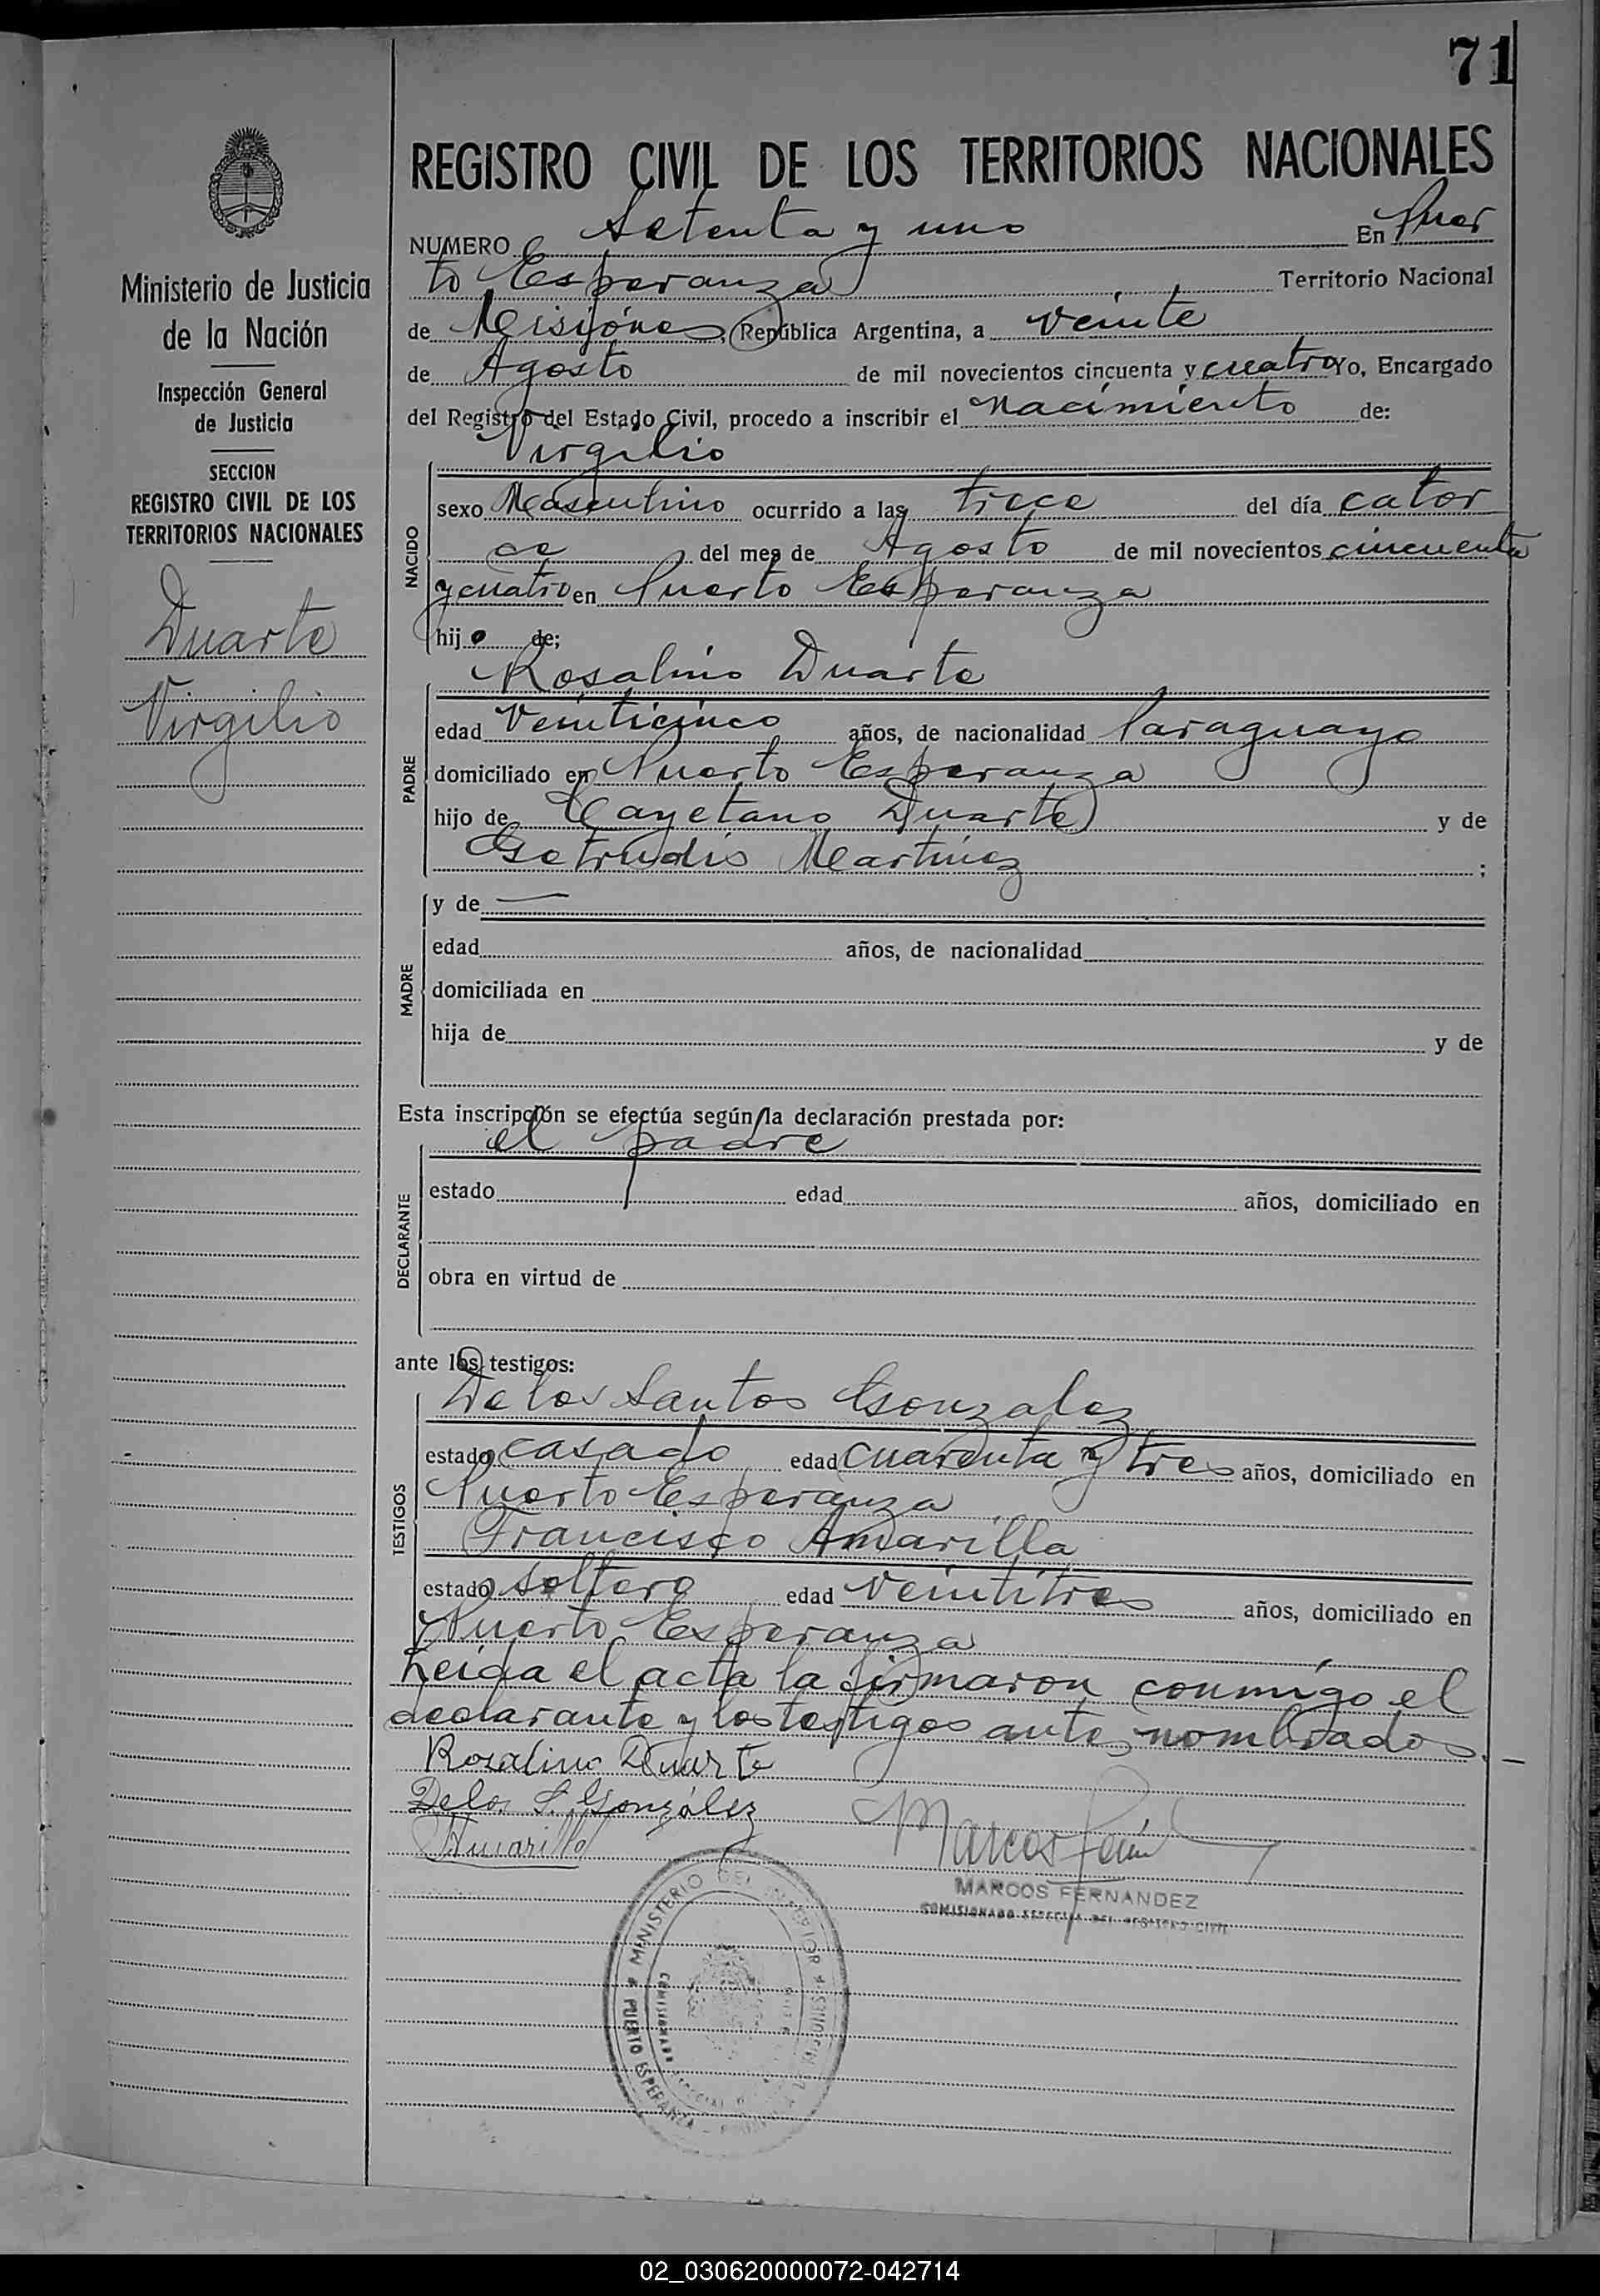 71
REGISTRO CIVIL DE LOS TERRITORIOS NACIONALES
NUMERO Setenta y uno En Puer
to Esperanza Territorio Nacional
de Misiones, República Argentina, a veinte
de Agosto de mil novecientos cincuenta y cuatro Yo, Encargado
del Registro del Estado Civil, procedo a inscribir el Nacimiento de:
Virgilio
NACIDO
sexo Masculino ocurrido a las trece del día cator
ce del mes de Agosto de mil novecientos cincuenta
y cuatro en Puerto Esperanza
hijo de;
Rosalino Duarte
PADRE
edad Veinticinco años, de nacionalidad Paraguayo
domiciliado en Puerto Esperanza
hijo de Cayetano Duarte y de
Getrudis Martinez ;
MADRE
y de —
edad años, de nacionalidad
domiciliada en
hija de y de
Esta inscripción se efectúa según la declaración prestada por:
el padre
DECLARANTE
estado edad años, domiciliado en
obra en virtud de
ante los testigos:
De los Santos Gonzalez
TESTIGOS
estado casado edad cuarenta y tres años, domiciliado en
Puerto Esperanza
Francisco Amarilla
estado soltero edad veintitres años, domiciliado en
Puerto Esperanza
Leida el acta la firmaron conmigo el
declarante y los testigos antes nombrados.—
Rosalino Duarte
Delos S. González
Amarilla
Marcos
MARCOS FERNANDEZ
COMISIONADO ESPECIAL DEL REGISTRO CIVIL
MINISTERIO DEL INTERIOR
PUERTO ESPERANZA
MISIONES
COMISIONADO
Ministerio de Justicia
de la Nación
Inspección General
de Justicia
SECCION
REGISTRO CIVIL DE LOS
TERRITORIOS NACIONALES
Duarte
Virgilio
02_030620000072-042714